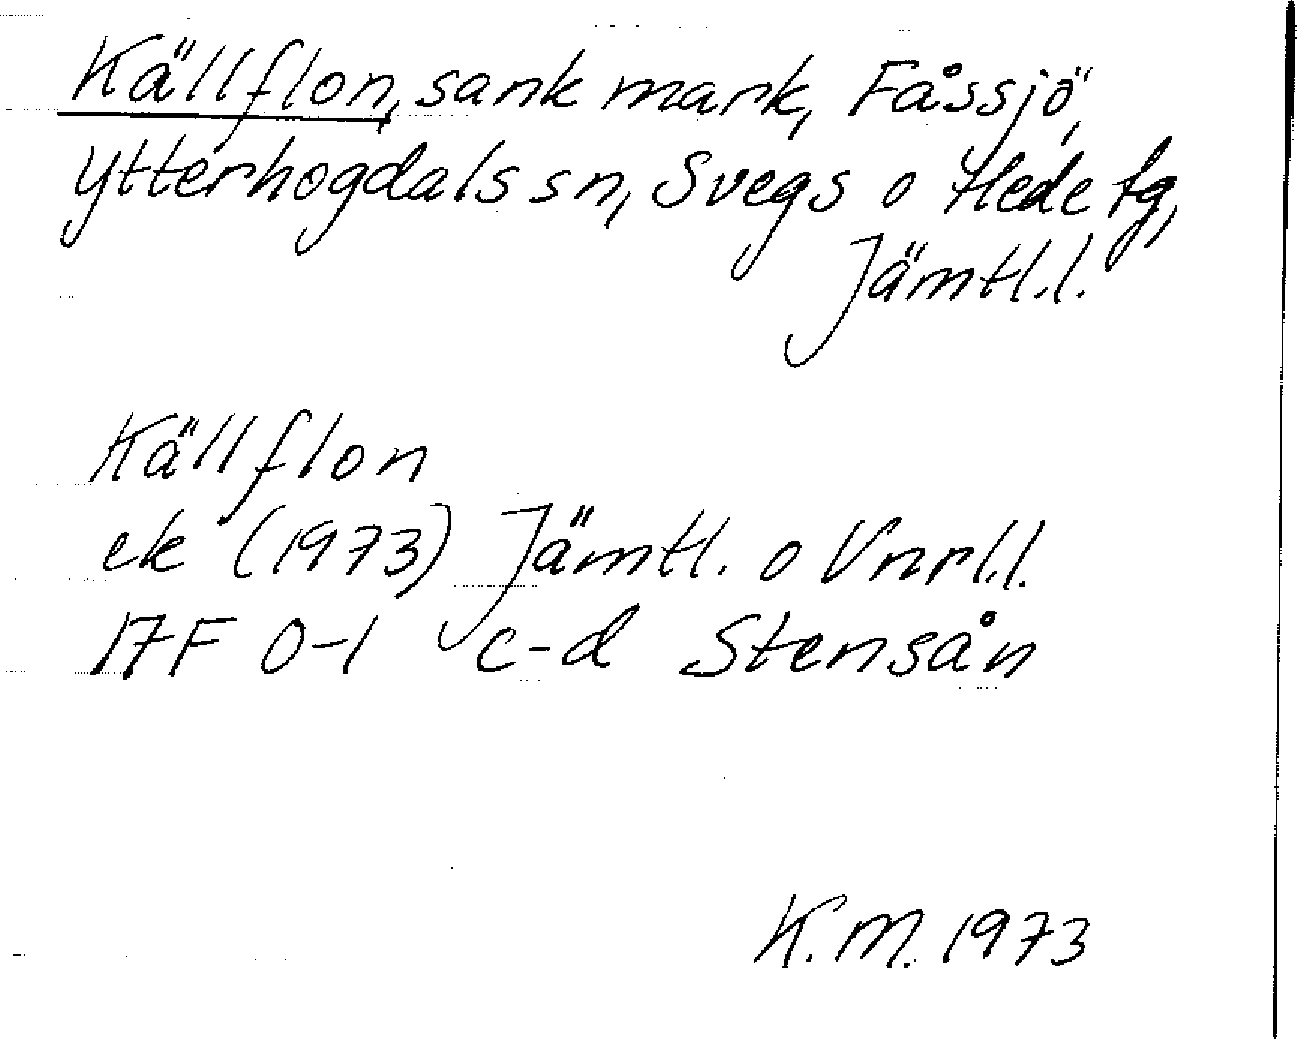 Källflon, sank mark, Fåssjö,
Ytterhogdals sn, Svegs o Hede tg,
Jämtl.l.
Källflon
ek (1973) Jämtl. o Vnrl.l.
17F 0-1 c-d Stensån
K.M. 1973